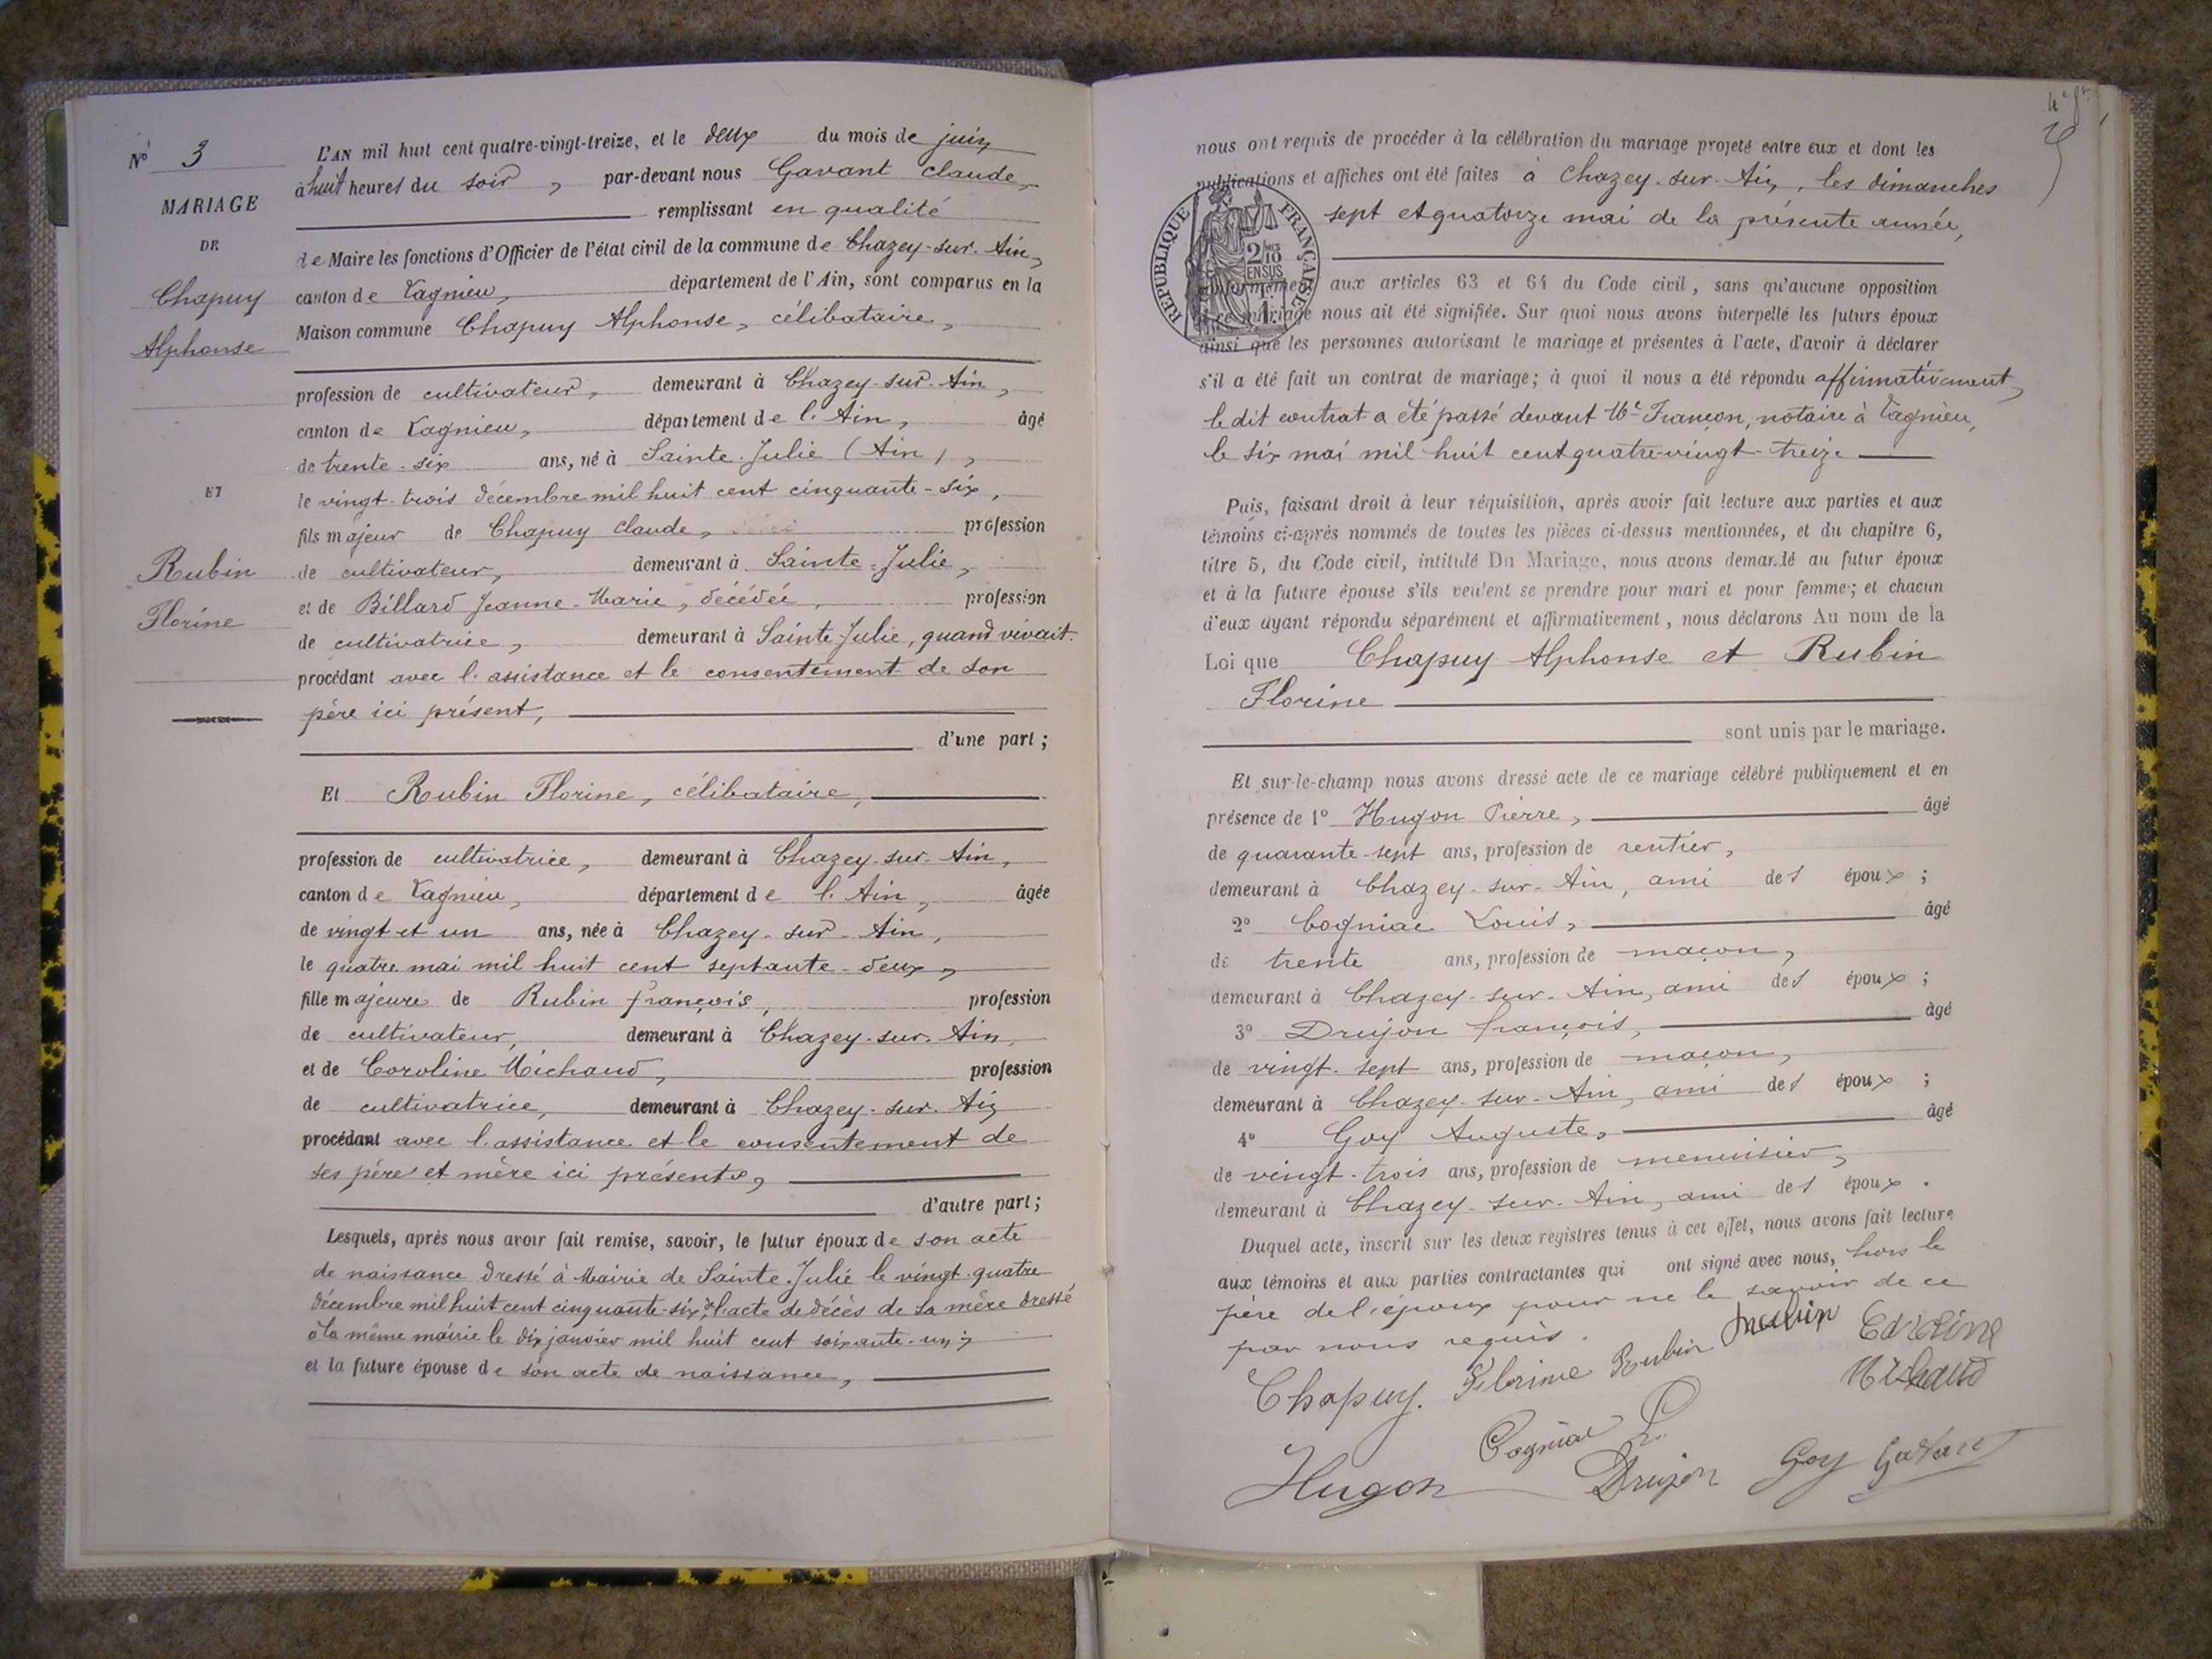 N° 3
MARIAGE
DE
Chapuy
Alphonse
ET
Rubin
Florine
L'AN mil huit cent quatre-vingt-treize, et le deux du mois de juin
à huit heures du soir, par-devant nous Gavant Claude,
remplissant en qualité
de Maire les fonctions d'Officier de l'état civil de la commune de Chazey-sur-Ain,
canton de Lagnieu, département de l'Ain, sont comparus en la
Maison commune Chapuy Alphonse, célibataire,
profession de cultivateur, demeurant à Chazey-sur-Ain,
canton de Lagnieu, département de l'Ain, âgé
de trente-six ans, né à Sainte-Julie (Ain),
le vingt-trois décembre mil huit cent cinquante-six,
fils majeur de Chapuy Claude, profession
de cultivateur, demeurant à Sainte-Julie,
et de Billard Jeanne-Marie, décédée, profession
de cultivatrice, demeurant à Sainte Julie, quand vivait.
procédant avec l'assistance et le consentement de son
père ici présent,
d'une part ;
Et Rubin Florine, célibataire,
profession de cultivatrice, demeurant à Chazey-sur-Ain,
canton de Lagnieu, département de l'Ain, âgée
de vingt et un ans, née à Chazey-sur-Ain,
le quatre mai mil huit cent septante-deux,
fille majeure de Rubin françois, profession
de cultivateur, demeurant à Chazey-sur-Ain,
et de Caroline Michaud, profession
de cultivatrice, demeurant à Chazey-sur-Ain
procédant avec l'assistance et le consentement de
ses père et mère ici présents,
d'autre part ;
Lesquels, après nous avoir fait remise, savoir, le futur époux de son acte
de naissance dressé à Mairie de Sainte-Julie le vingt-quatre
décembre mil huit cent cinquante-six, de l'acte de décès de sa mère dressé
à la même mairie le dix janvier mil huit cent soixante-un ;
et la future épouse de son acte de naissance,
nous ont requis de procéder à la célébration du mariage projeté entre eux et dont les
publications et affiches ont été faites à Chazey-sur-Ain, les dimanches
sept et quatorze mai de la présente année,
RÉPUBLIQUE FRANÇAISE
2/10
EN SUS
conformément aux articles 63 et 64 du Code civil, sans qu'aucune opposition
à ce mariage nous ait été signifiée. Sur quoi nous avons interpellé les futurs époux
ainsi que les personnes autorisant le mariage et présentes à l'acte, d'avoir à déclarer
s'il a été fait un contrat de mariage ; à quoi il nous a été répondu affirmativement,
le dit contrat a été passé devant Me Françon, notaire à Lagnieu,
le six mai mil huit cent quatre-vingt-treize
Puis, faisant droit à leur réquisition, après avoir fait lecture aux parties et aux
témoins ci-après nommés de toutes les pièces ci-dessus mentionnées, et du chapitre 6,
titre 5, du Code civil, intitulé Du Mariage, nous avons demandé au futur époux
et à la future épouse s'ils veulent se prendre pour mari et pour femme ; et chacun
d'eux ayant répondu séparément et affirmativement, nous déclarons Au nom de la
Loi que Chapuy Alphonse et Rubin
Florine
sont unis par le mariage.
Et sur-le-champ nous avons dressé acte de ce mariage célébré publiquement et en
présence de 1° Hugon Pierre, âgé
de quarante-sept ans, profession de rentier,
demeurant à Chazey-sur-Ain, ami des époux ;
2° Cogniac Louis, âgé
de trente ans, profession de maçon,
demeurant à Chazey-sur-Ain, ami des époux ;
3° Drujon françois, âgé
de vingt-sept ans, profession de maçon,
demeurant à Chazey-sur-Ain, ami des époux ;
4° Goy Auguste, âgé
de vingt-trois ans, profession de menuisier,
demeurant à Chazey-sur-Ain, ami des époux.
Duquel acte, inscrit sur les deux registres tenus à cet effet, nous avons fait lecture
aux témoins et aux parties contractantes qui ont signé avec nous, hors le
père de l'époux pour ne le savoir de ce
par nous requis.
Chapuy. Florine Rubin Caroline
Michaud
Cogniac L
Hugon Drujon Goy Gavant